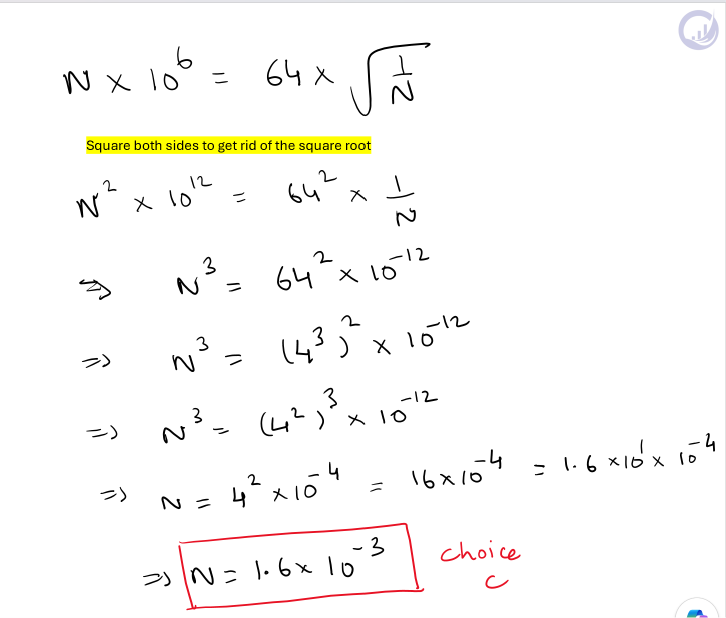 N × 10⁶ = 64 × √(1/N)
Square both sides to get rid of the square root
N² × 10¹² = 64² × 1/N
⇒ N³ = 64² × 10⁻¹²
⇒ N³ = (4³)² × 10⁻¹²
⇒ N³ = (4²)³ × 10⁻¹²
⇒ N = 4² × 10⁻⁴ = 16 × 10⁻⁴ = 1.6 × 10¹ × 10⁻⁴
⇒ N = 1.6 × 10⁻³ choice
C